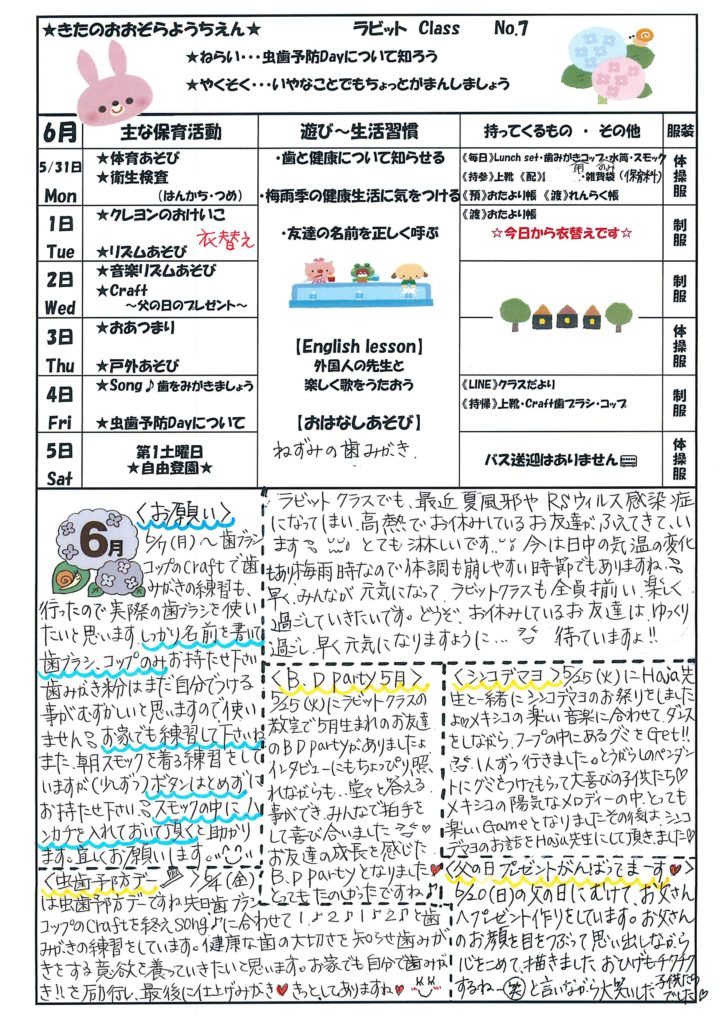 ★きたのおおぞらようちえん★
ラビット Class No.7
★ねらい・・・虫歯予防Dayについて知ろう
★やくそく・・・いやなことでもちょっとがまんしましょう
6月 主な保育活動 遊び～生活習慣 持ってくるもの ・ その他 服装
5/31日 Mon
★体育あそび
★衛生検査
(はんかち・つめ)
・歯と健康について知らせる
・梅雨季の健康生活に気をつける
《毎日》Lunch set・歯みがきコップ・水筒・スモック
《持参》上靴 《配》 ・雑費袋(保育料)
《預》おたより帳 《渡》れんらく帳
体操服
1日 Tue
★クレヨンのおけいこ
衣替え
★リズムあそび
・友達の名前を正しく呼ぶ
《渡》おたより帳
☆今日から衣替えです☆
制服
2日 Wed
★音楽リズムあそび
★Craft
～父の日のプレゼント～
制服
3日 Thu
★おあつまり
★戸外あそび
【English lesson】
外国人の先生と
楽しく歌をうたおう
体操服
4日 Fri
★Song♪歯をみがきましょう
★虫歯予防Dayについて
【おはなしあそび】
《LINE》クラスだより
《持帰》上靴・Craft歯ブラシ・コップ
制服
5日 Sat
第1土曜日
★自由登園★
ねずみの歯みがき.
バス送迎はありません
体操服
6月
〈お願い〉
6/7(月)～歯ブラシ
コップのCraftで歯
みがきの練習も、
行ったので実際の歯ブラシを使い
たいと思います。しっかり名前を書いて
歯ブラシ、コップのみお持たせ下さい
歯みがき粉はまだ自分でつける
事がむずかしいと思いますので使い
ません。お家でも練習して下さいね
また、朝スモックを着る練習をして
いますが(少しずつ)ボタンはとめずに
お持たせ下さい。スモックの中にハ
ンカチを入れておいて頂くと助かり
ます。宜しくお願いします。
ラビットクラスでも、最近夏風邪やRSウィルス感染症
になってしまい、高熱でお休みしているお友達がふえてきてい
ます。とても淋しいです。今は日中の気温の変化
もあり梅雨時なので体調も崩しやすい時節でもありますね。
早く、みんなが元気になって、ラビットクラスも全員揃い、楽しく
過ごしていきたいです。どうぞ、お休みしているお友達は、ゆっくり
過ごし、早く元気になりますように… 待っていますよ!!
〈B.D party 5月〉
5/25(火)にラビットクラスの
教室で5月生まれのお友達
のB.D partyがありましたよ
インタビューにもちょっぴり照
れながらも、堂々と答える
事ができ、みんなで拍手を
して喜び合いました♥
お友達の成長を感じた
B.D partyとなりました
とってもたのしかったですね♪
〈シンコデマヨ〉5/25(火)にHaja先
生と一緒にシンコデマヨのお祭りをしました
よ♪メキシコの楽しい音楽に合わせて、ダンス
をしながら、フープの中にあるグミをGet!!
1人ずつ行きました。とうがらしのペンダン
トにグミをつけてもらって大喜びの子供たち♡
メキシコの陽気なメロディーの中、とっても
楽しいGameとなりました。その後は、シンコ
デマヨのお話をHaja先生にして頂きました♡
〈虫歯予防デー〉6/4(金)
は虫歯予防デーですね。先日歯ブラシ
コップのCraftを終え、song♪に合わせて1♪2♪1♪2♪と歯
みがきの練習をしています。健康な歯の大切さを知らせ歯みが
きをする意欲を養っていきたいと思います。お家でも自分で歯みが
き!!を励行し、最後に仕上げみがき♥きっとしてありますね♥
〈父の日プレゼントがんばってまーす♥
6/20(日)の父の日にむけて、お父さん
へプレゼント作りをしています。お父さん
のお顔を目をつぶって思い出しながら
心をこめて、描きました。おひげもチクチク
するねー(笑)と言いながら大笑いした子供たち
でした♡